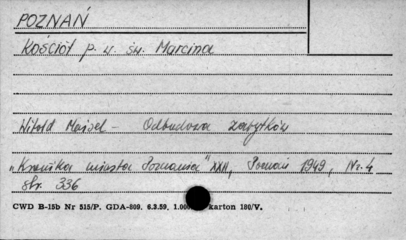 POZNAŃ
Kościół p. w. św. Marcina
Witold Maisel - Odbudowa zabytków
"Kronika miasta Poznania" XXII, Poznań 1949, Nr. 4
str. 336
CWD B-15b Nr 515/P. GDA-809. 6.3.59. 1.00 karton 180/V.